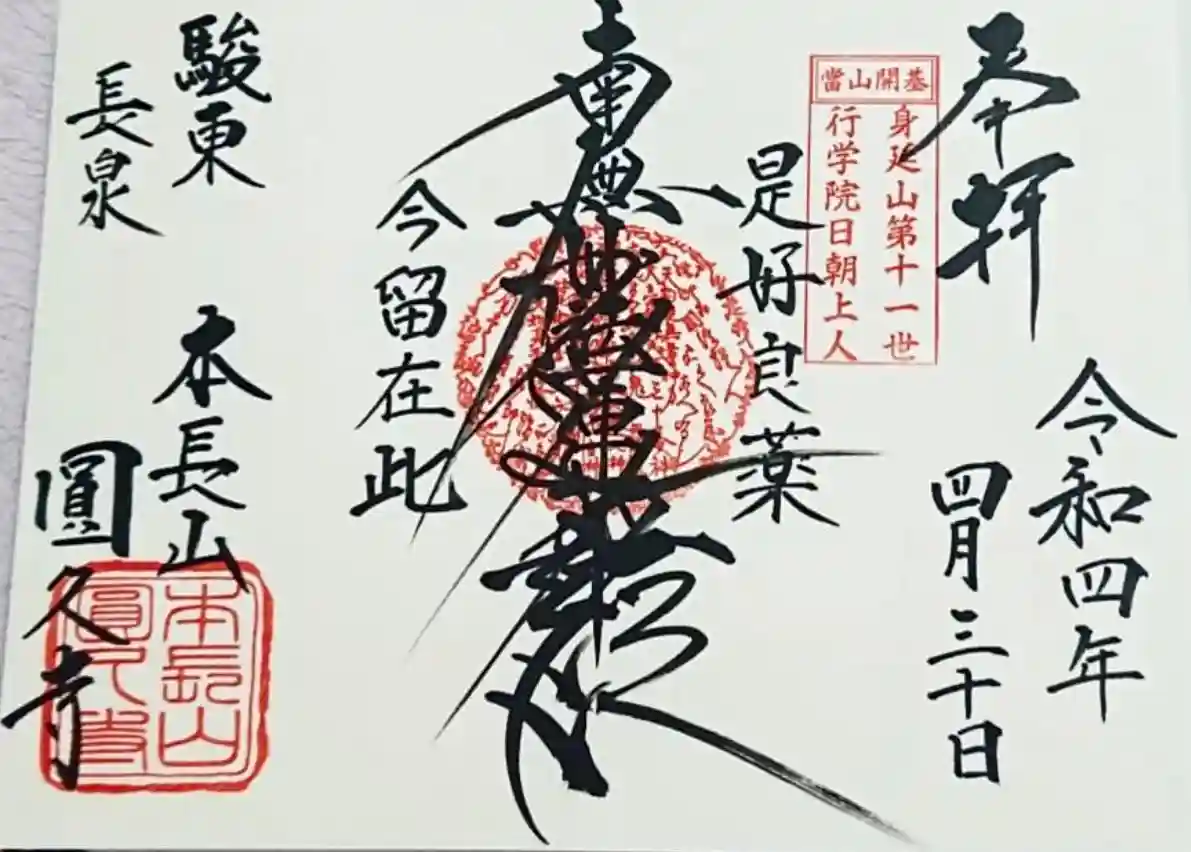 奉拝
令和四年
四月三十日
當山開基
身延山第十一世
行学院日朝上人
是好良薬
南無妙法蓮華経
今留在此
駿東
長泉
本長山
圓久寺
本長山
圓久寺